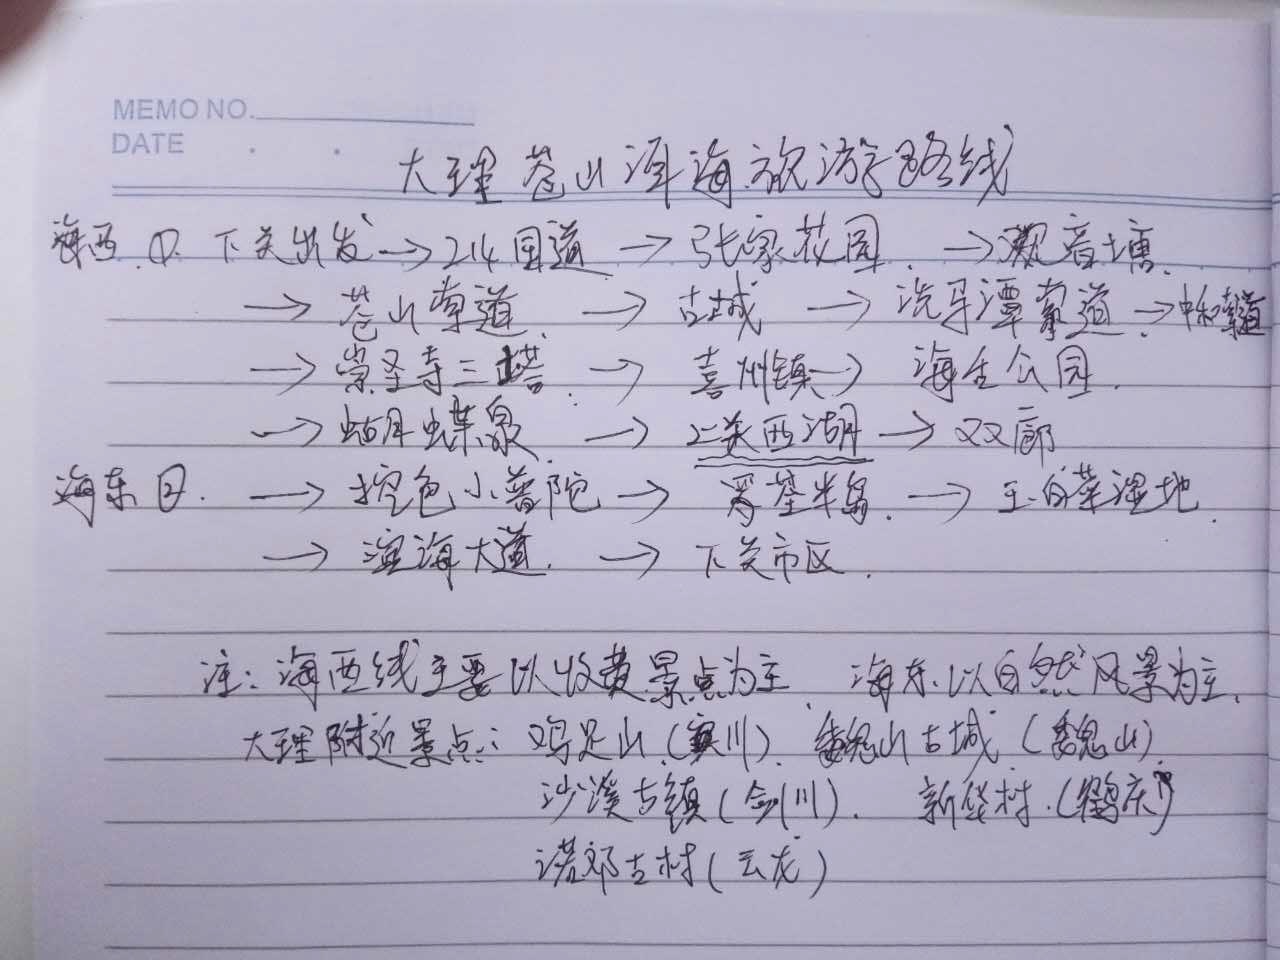 MEMO NO.
DATE . .
大理苍山洱海旅游路线
海西.①.下关出发→214国道→张家花园.→观音塘.
→苍山索道.→古城→洗马潭索道.→中和索道
→崇圣寺三塔.→喜州镇→海舌公园.
→蝴蝶泉→上关西湖→双廊
海东②.→挖色小普陀→罗荃半岛.→玉白菜湿地.
→滨海大道.→下关市区.
注:海西线主要以收费景点为主.海东.以自然风景为主.
大理附近景点:鸡足山.(宾川).巍山古城(巍山)
沙溪古镇(剑川).新华村.(鹤庆)
诺邓古村(云龙)